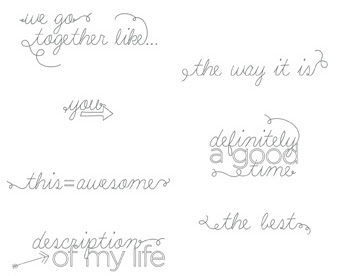 we go
together like...
the way it is
you
definitely
a good
time
this=awesome
the best
description
of my life